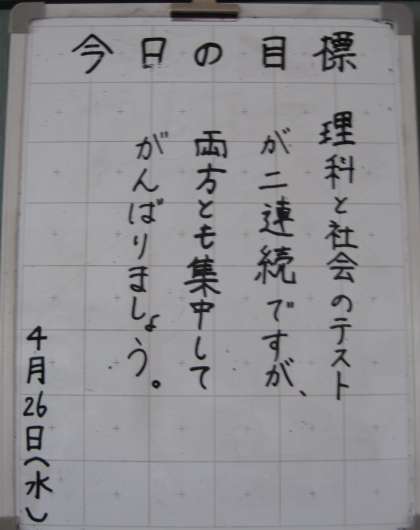 今日の目標
理科と社会のテスト
が二連続ですが、
両方とも集中して
がんばりましょう。
4月26日(水)